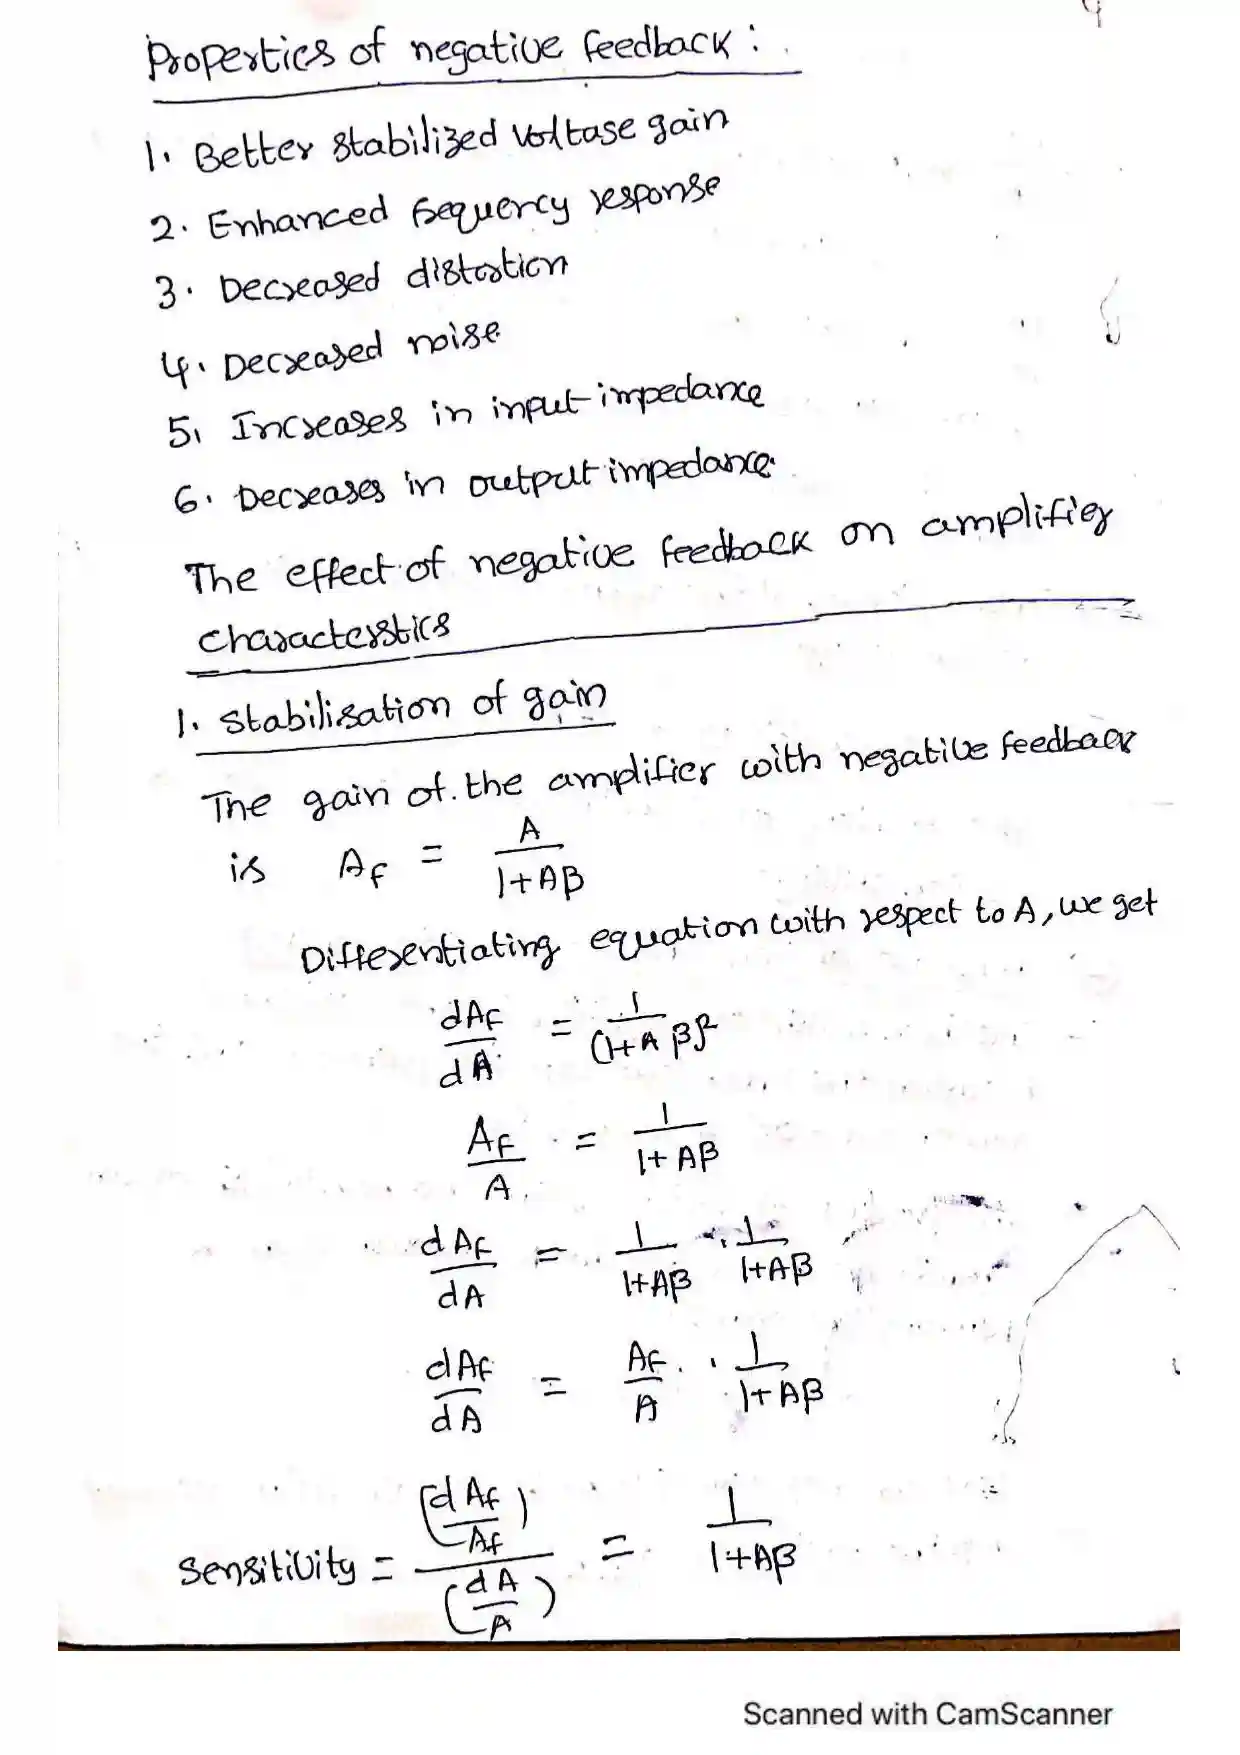 Properties of negative feedback :
1. Better stabilized voltage gain
2. Enhanced frequency response
3. Decreased distortion
4. Decreased noise
5. Increases in input impedance
6. Decreases in output impedance
The effect of negative feedback on amplifier
characterstics
1. Stabilisation of gain
The gain of the amplifier with negative feedback
is A_F = A / (1+Aβ)
Differentiating equation with respect to A, we get
dA_F / dA = 1 / (1+Aβ)²
A_F / A = 1 / (1+Aβ)
dA_F / dA = 1 / (1+Aβ) · 1 / (1+Aβ)
dA_F / dA = A_F / A · 1 / (1+Aβ)
Sensitivity = (dA_F / A_F) / (dA / A) = 1 / (1+Aβ)
Scanned with CamScanner